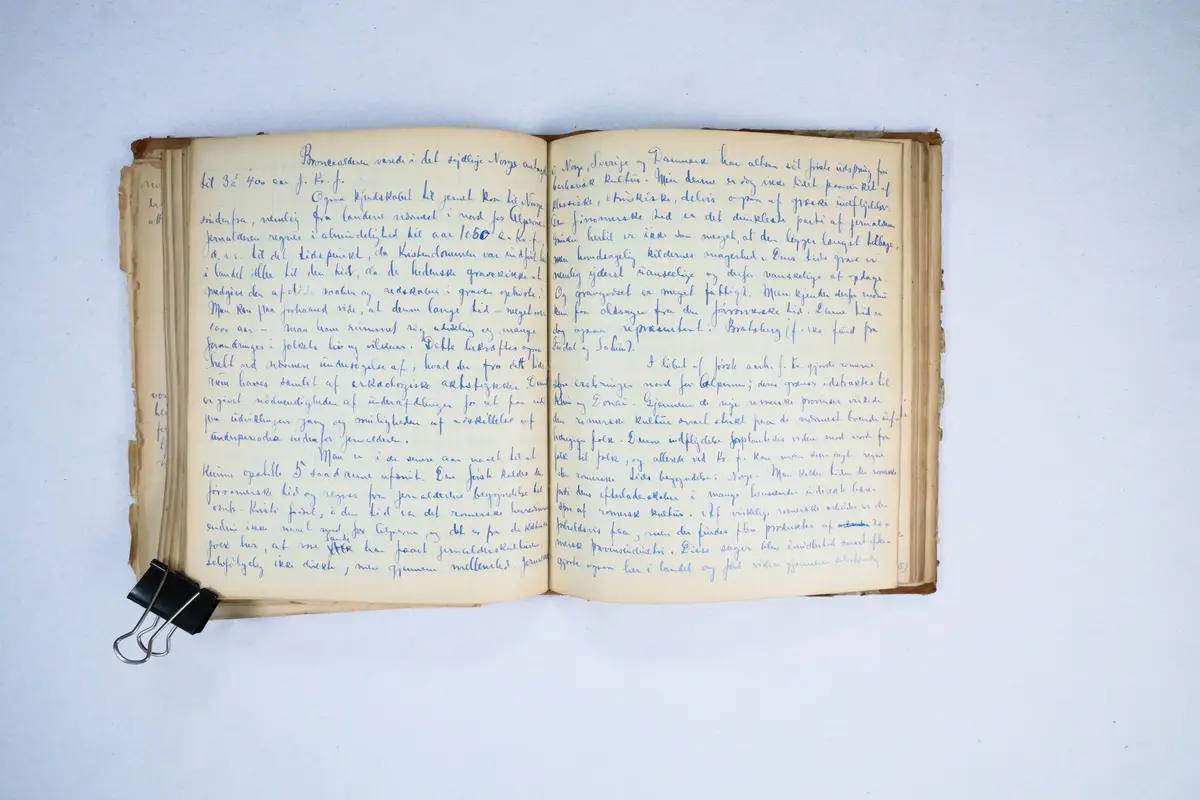 Broncealderen varede i det sydlige Norge
til 3 à 400 aar f. Kr. f.
Ogsaa kjendskabet til jernet kom til Norge
søndenfra, nemlig fra landene nærmest i nord for Alperne.
Jernalderen regnes i almindelighed til aar 1050 e. Kr. f.,
d. v. s. til det tidspunkt, da Kristendommen var indført
i landet eller til den tid, da de hedenske gravskikke at
medgive den afdøde vaaben og redskaber i graven ophørte.
Man kan paa forhaand vide, at denne lange tid – meget over
1000 aar – maa have rummet udvikling og mange
forandringer i folkets liv og vilkaar. Dette bekræftes ogsaa
helt ved nærmere undersøgelse af, hvad der fra dette tids-
rum haves samlet af arkæologiske oldstykker. Den
er givet nødvendigheden af underafdelinger for at faa
paa udviklingens gang og muligheden af adskillelse af
underperioder indenfor jernalderen.
Man er i de senere aar naaet til at
kunne opstille 5 saadanne afsnit. Den første kaldes den
førromerske tid og regnes fra jernalderens begyndelse til
omtr. Kristi fødsel, i den tid var det romerske herredømme
endnu ikke naaet nord for Alperne, og det er fra de keltiske
folk her, at vore lande har faaet jernalderskulturen
selvfølgelig ikke direkte, men gjennem mellemled. Jernalderen
i Norge, Sverige og Danmark har altsaa sit første udspring fra
barbarisk kultur. Men denne er dog ikke lidet paavirket af
klassiske, etruskiske, delvis ogsaa af græske indflydelser.
Den førromerske tid er det dunkleste parti af jernalderen
Grunden hertil er ikke saa meget, at den ligger længst tilbage,
men hovedsagelig kildernes magerhed. Dens tids grave er
nemlig yderst uanseelige og derfor vanskelige at opdage.
Og gravgodset er meget fattigt. Man kjender derfor endnu
kun faa oldsager fra den førromerske tid. Denne tid er
dog ogsaa repræsenteret i Bratsberg (f. eks. fund fra
I løbet af første aarh. f. Kr. gjorde romerne
store erobringer nord for Alperne; deres grænser udstraktes til
Rhin og Donau. Gjennem de nye romerske provinser virkede
den romerske kultur svært sterkt paa de nærmest boende uaf-
hængige folk. Denne indflydelse forplantedes videre mod nord fra
folk til folk, og allerede ved Kr. f. kan man som nyt regne
den romerske tids begyndelse i Norge. Man kalder tiden den romerske
fordi dens efterladenskaber i mange henseender indirekte bære
præg af romersk kultur. Af virkelige romerske arbeider er der
forholdsvis faa, men der findes flere produkter af den ro-
mersk provinsindustri. Disse sager blev imidlertid snart efter-
gjorte ogsaa her i landet og ført videre gjennem